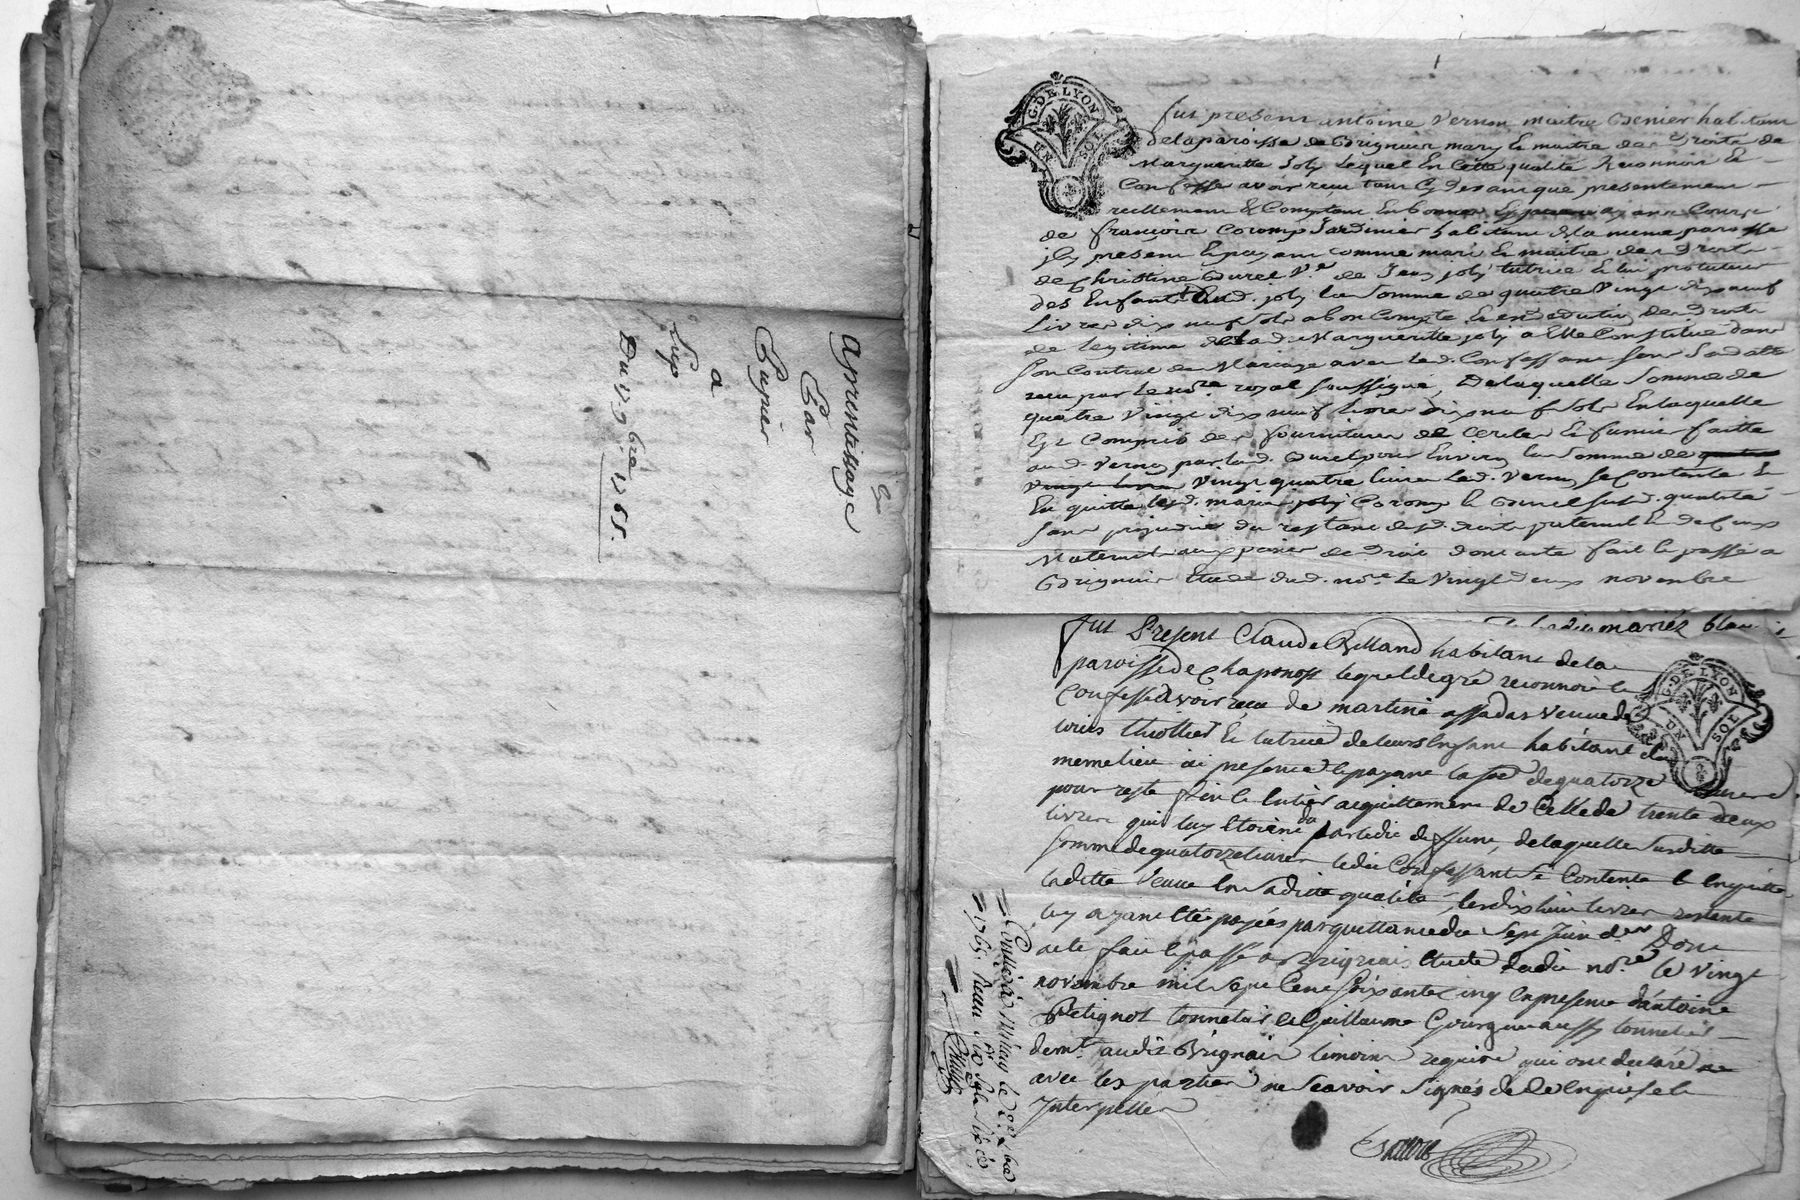 aprentissage
Par
Cuzier
a
Du 19 bre 1765.
G. DE LYON
UN SOL
fut present antoine Vernon maitre Grenier habitant
de la paroisse de Brignais mary le maitre des droits de
Marguerite Joly lequel En Cette qualité Reconnoit Et
Confesse avoir receu tout Cy devant que presentement
reellement Et Comptant En bonnes Especes ayant Cours
de françois Coromp Jardinier habitant de la meme paroisse
icy present Et payant comme mari Et maitre des Droits
de Christine Gurel Ve. de Jean joly tutrice Et lui protuteur
des Enfants dud. joly la Somme de quatre Vingt dix neuf
Livres dix neuf sols a bon Compte Et en deduction des Droits
de legitime de lad. Marguerite joly a Elle Constitué dans
Son Contrat de Mariage avec led. Confessant
receu par le nore. royal soussigné, De laquelle Somme de
quatre Vingt dix neuf livres dix neuf sols En laquelle
Est Compris des fournitures de Cercles Et fumier faitte
aud. Vernon par lad. Gurel pour Environ la Somme de quatre
Vingt livres Vingt quatre livres led. Vernon se Contente Et
En quitte lesd. mariés joly Coromp Et Gurel susd. qualité
Sans prejudice du restant desd. droits paternel Et de Ceux
Maternel aux peines de Droit dont acte fait Et passé a
Brignais Etude dud. nore. Le Vingt Deux novembre
mariéz
G. DE LYON
UN SOL
fut Present Claude Billand habitant de la
paroisse de Chaponost lequel de gré reconnoit Et
Confesse avoir receu de martine assadas Veuve de
Louis thiollier Et tutrice de leurs Enfants habitant du
meme lieu ici presente Et payant la sõe de quatorze livres
pour reste Et Entier acquittement de Celle de trente deux
livres qui luy Etoient du par ledit deffunt, de laquelle Susditte
Somme de quatorze livres ledit Confessant Se Contente Et En quitte
laditte Veuve En saditte qualité, les dix huit livres restante
luy ayant Eté payées par quittance du Sept Juin der. Dont
acte fait Et passé a Brignais Etude dudit nore. le Vingt
novembre mil Sept Cent Soixante Cinq En presence d'antoine
Petignot tonnelier et Guillaume Gourgue aussy tonnelier
demt. audit Brignais temoins requis qui ont declaré ne
avec les parties ne Scavoir Signer de ce Enquis et
Interpellés
Controllé a Millery le 22. 9bre
1765. Receu